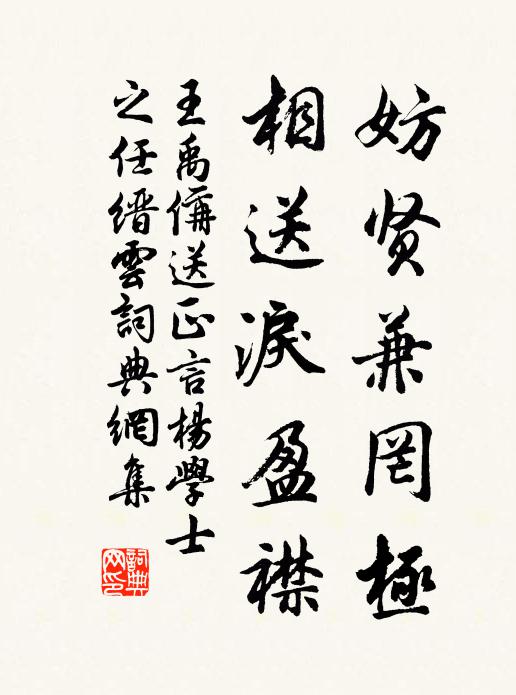 妨贤兼罔極
相送淚盈襟
王禹偁送正言楊學士
之任縉雲詞典網集
詞典
网印